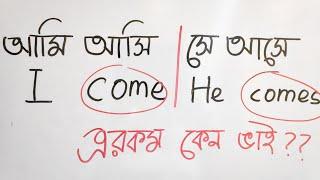 আমি আসি | সে আসে
I come | He comes
এরকম কেন ভাই??